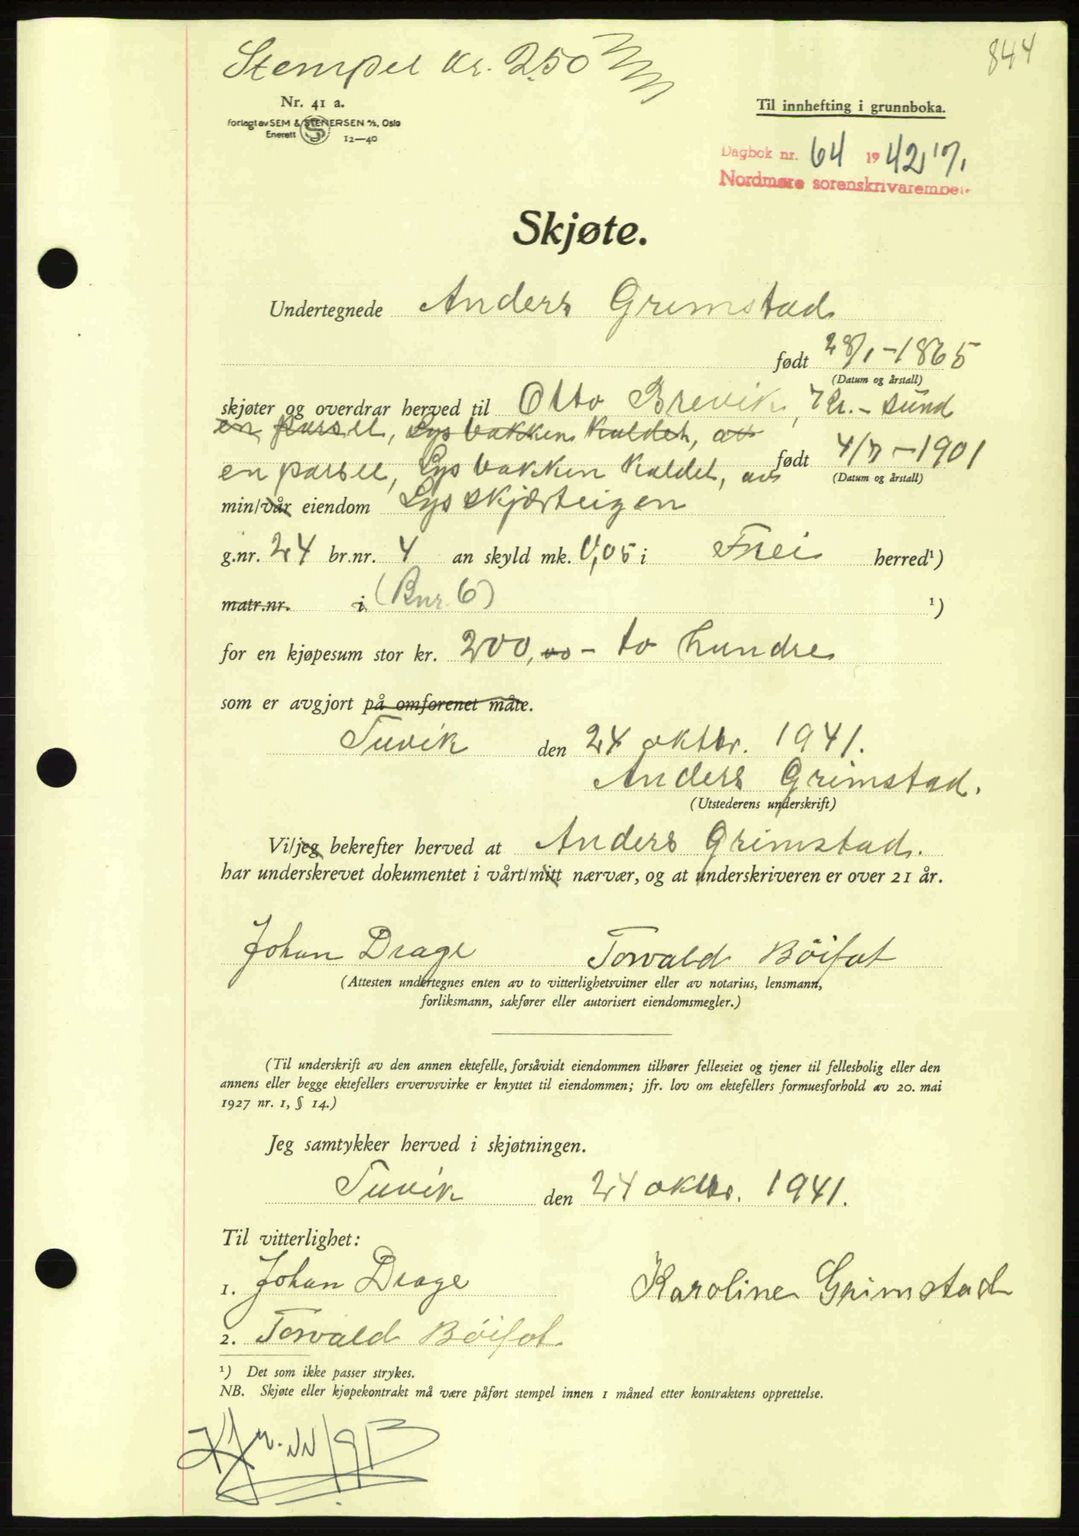 844
Stempel kr. 2.50
Nr. 41 a.
Forlagt av SEM & STENERSEN A/S, Oslo
Enerett 12—40
Til innhefting i grunnboka.
Dagbok nr. 64 1942 17/1
Nordmøre sorenskrivarembete
Skjøte.
Undertegnede Anders Grimstad
født 28/1 - 1865
(Datum og årstall)
skjøter og overdrar herved til Otto Brevik, Kr. - sund
en parsel, Lysbakken kaldet, av
født 4/7 - 1901
(Datum og årstall)
en parsel, Lysbakken kaldet, av
min/vår eiendom Lysskjærteigen
g.nr. 24 br.nr. 4 an skyld mk. 0,05 i Frei herred¹)
matr.nr. i (Bnr. 6) ¹)
for en kjøpesum stor kr. 200,00 - to hundre
som er avgjort på omforenet måte.
Tuvik den 24 oktbr. 1941.
Anders Grimstad.
(Utstederens underskrift)
Vi/jeg bekrefter herved at Anders Grimstad.
har underskrevet dokumentet i vårt/mitt nærvær, og at underskriveren er over 21 år.
Johan Drage Torvald Böifot
(Attesten undertegnes enten av to vitterlighetsvitner eller av notarius, lensmann,
forliksmann, sakfører eller autorisert eiendomsmegler.)
(Til underskrift av den annen ektefelle, forsåvidt eiendommen tilhører felleseiet og tjener til fellesbolig eller den
annens eller begge ektefellers ervervsvirke er knyttet til eiendommen; jfr. lov om ektefellers formuesforhold av 20. mai
1927 nr. 1, § 14.)
Jeg samtykker herved i skjøtningen.
Tuvik den 24 oktbr. 1941.
Til vitterlighet:
1. Johan Drage Karoline Grimstad
2. Torvald Böifot
¹) Det som ikke passer strykes.
NB. Skjøte eller kjøpekontrakt må være påført stempel innen 1 måned etter kontraktens opprettelse.